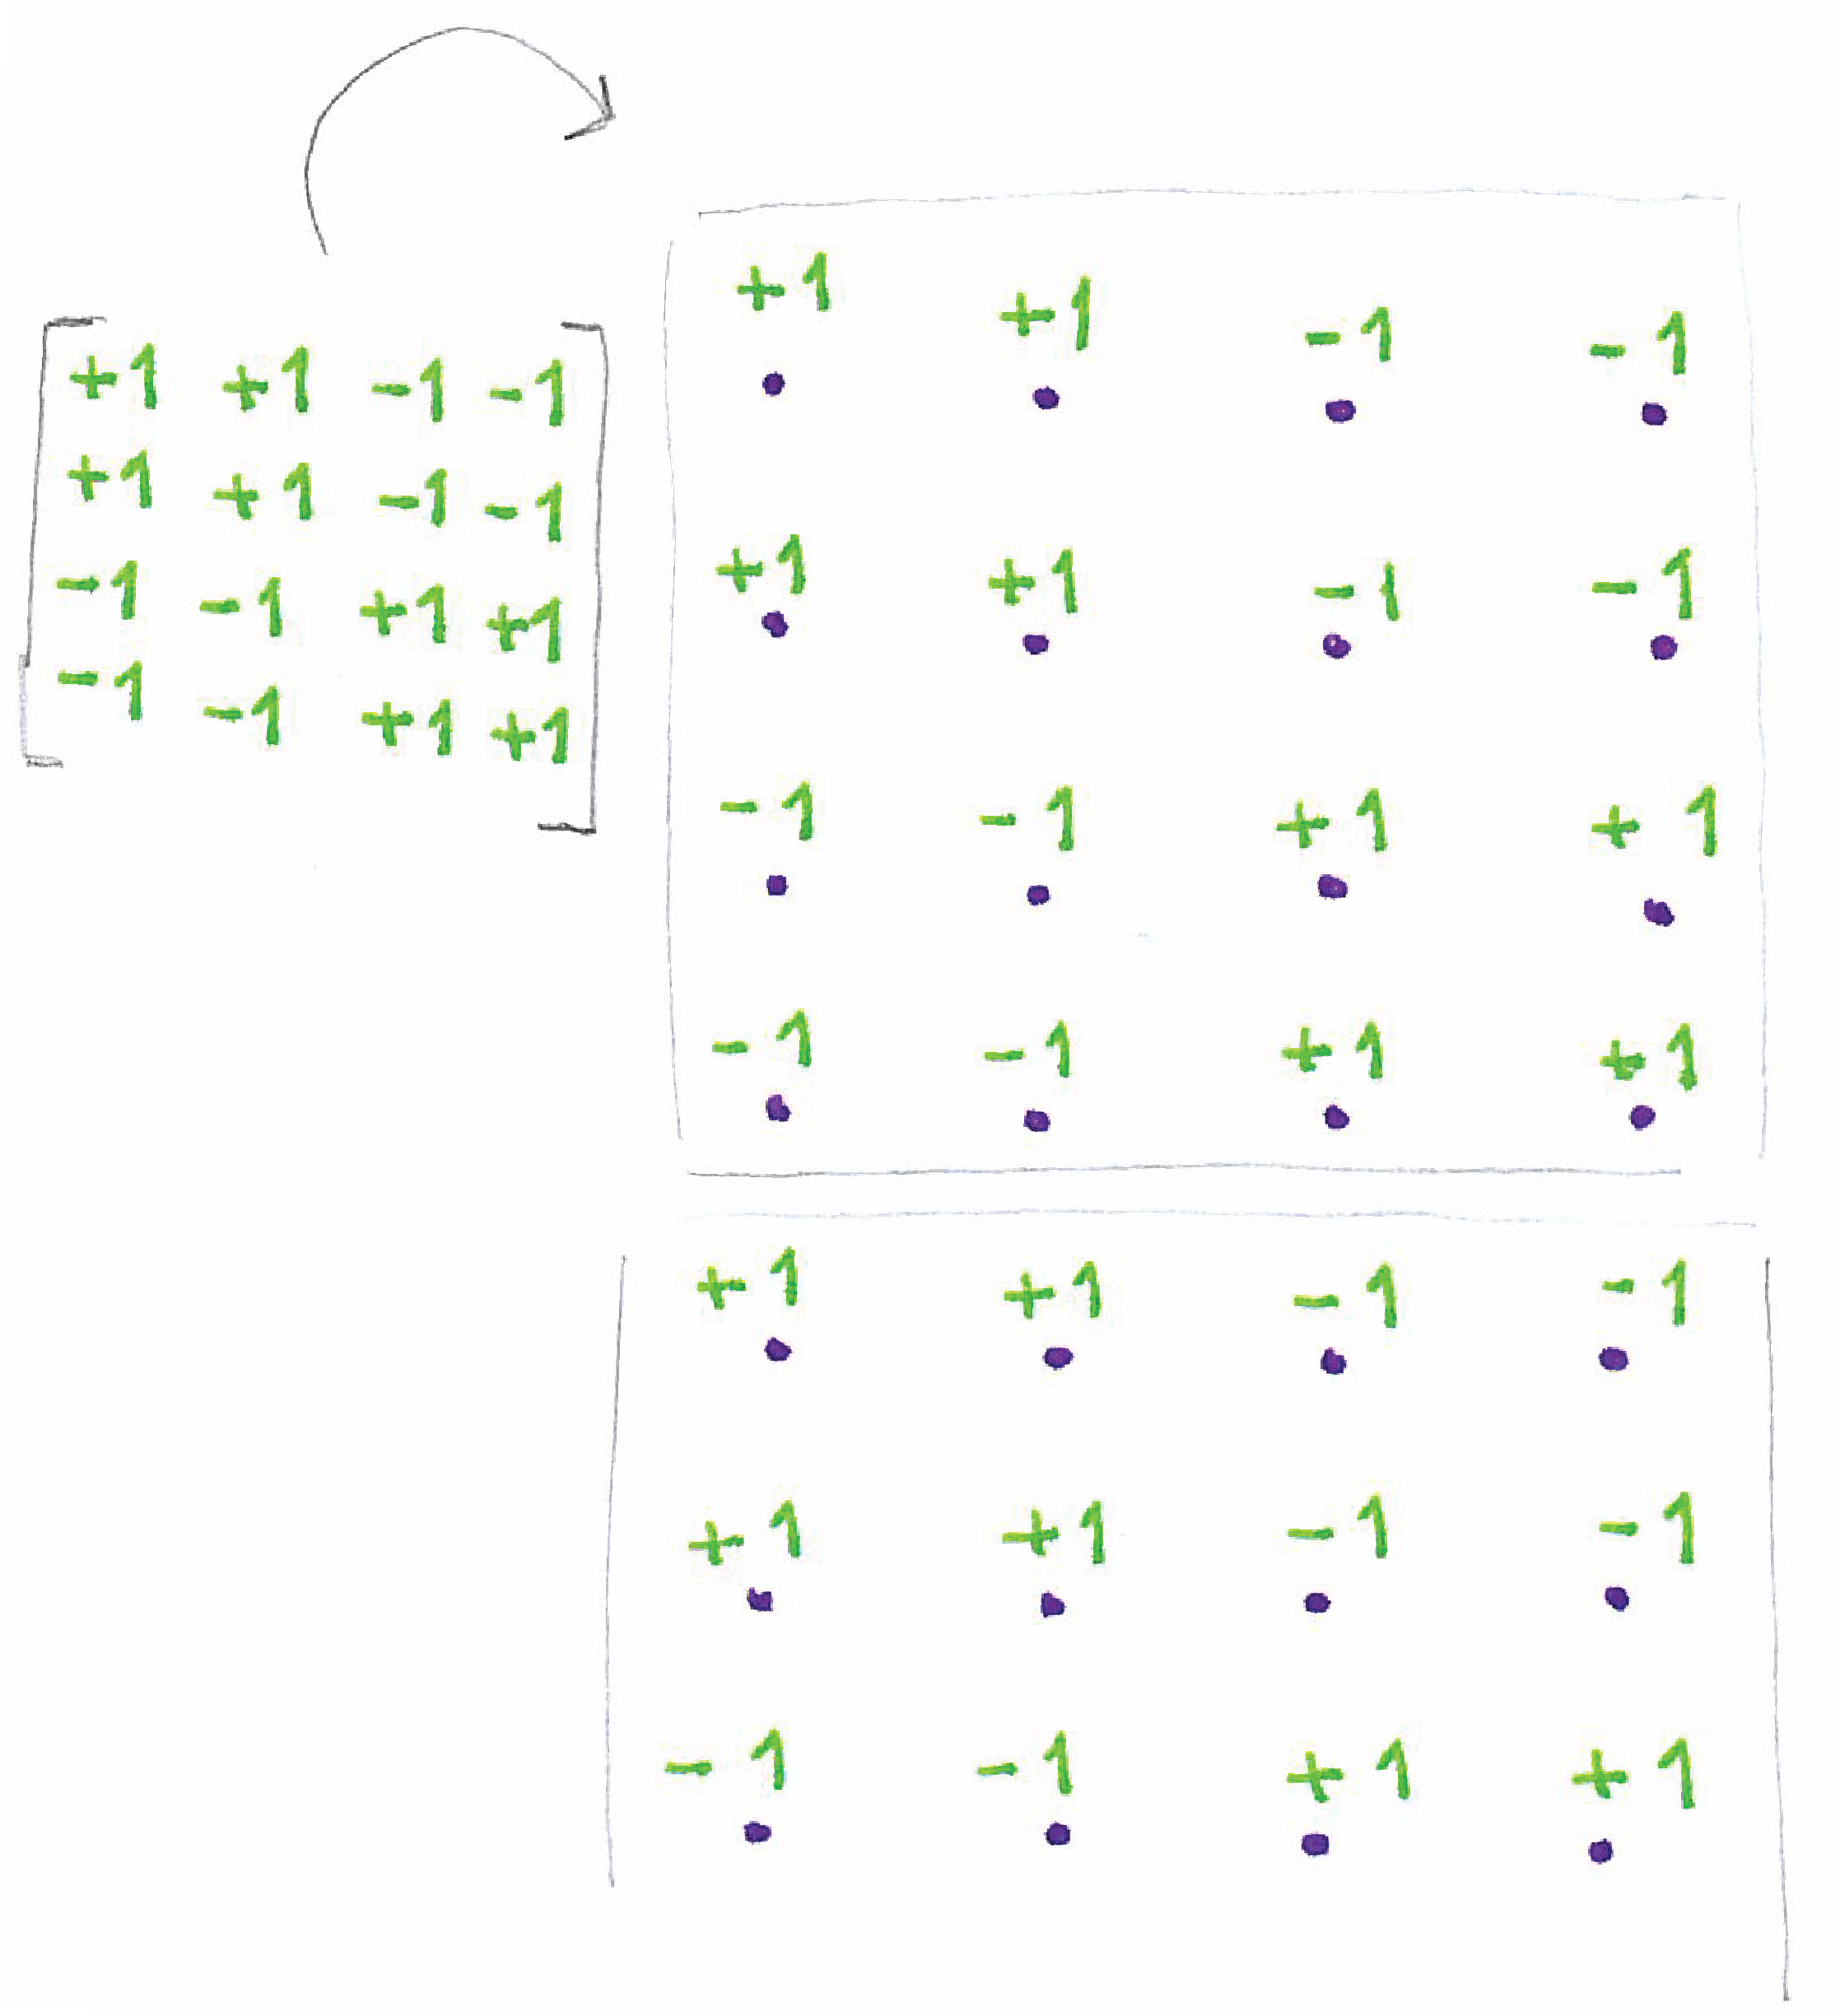 +1 +1 -1 -1
+1 +1 -1 -1
-1 -1 +1 +1
-1 -1 +1 +1
+1 +1 -1 -1
+1 +1 -1 -1
-1 -1 +1 +1
-1 -1 +1 +1
+1 +1 -1 -1
+1 +1 -1 -1
-1 -1 +1 +1